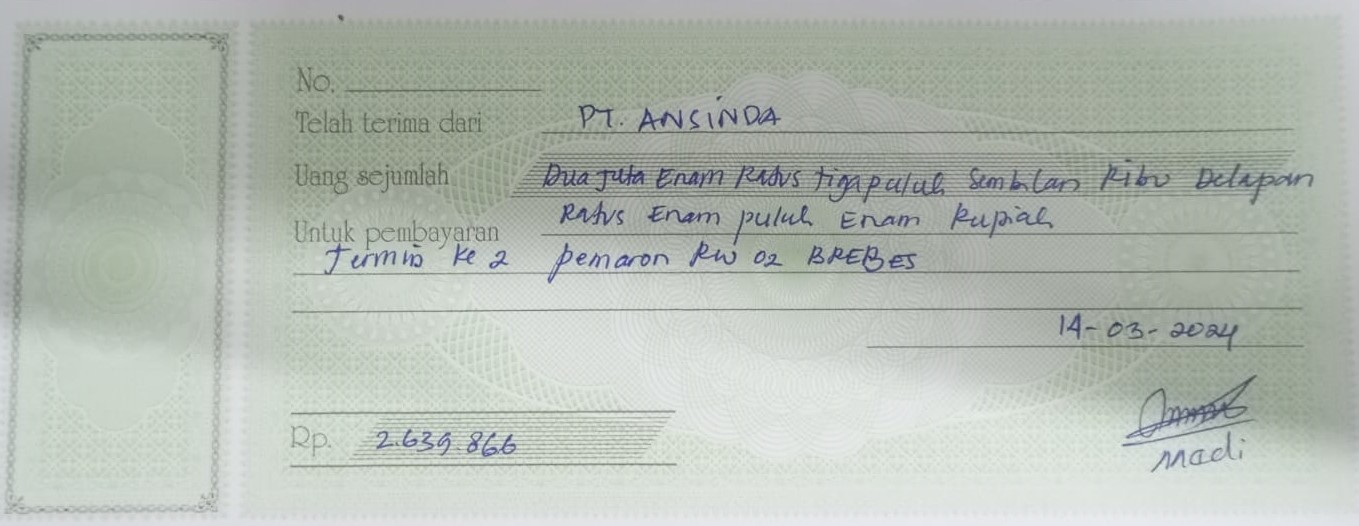 No.
Telah terima dari PT. ANSINDA
Uang sejumlah Dua Juta Enam Ratus tigapuluh Sembilan Ribu Delapan
Ratus Enam puluh Enam Rupiah
Untuk pembayaran
Termin ke 2 pemaron RW 02 BREBES
14-03-2024
Rp. 2.639.866
Madi